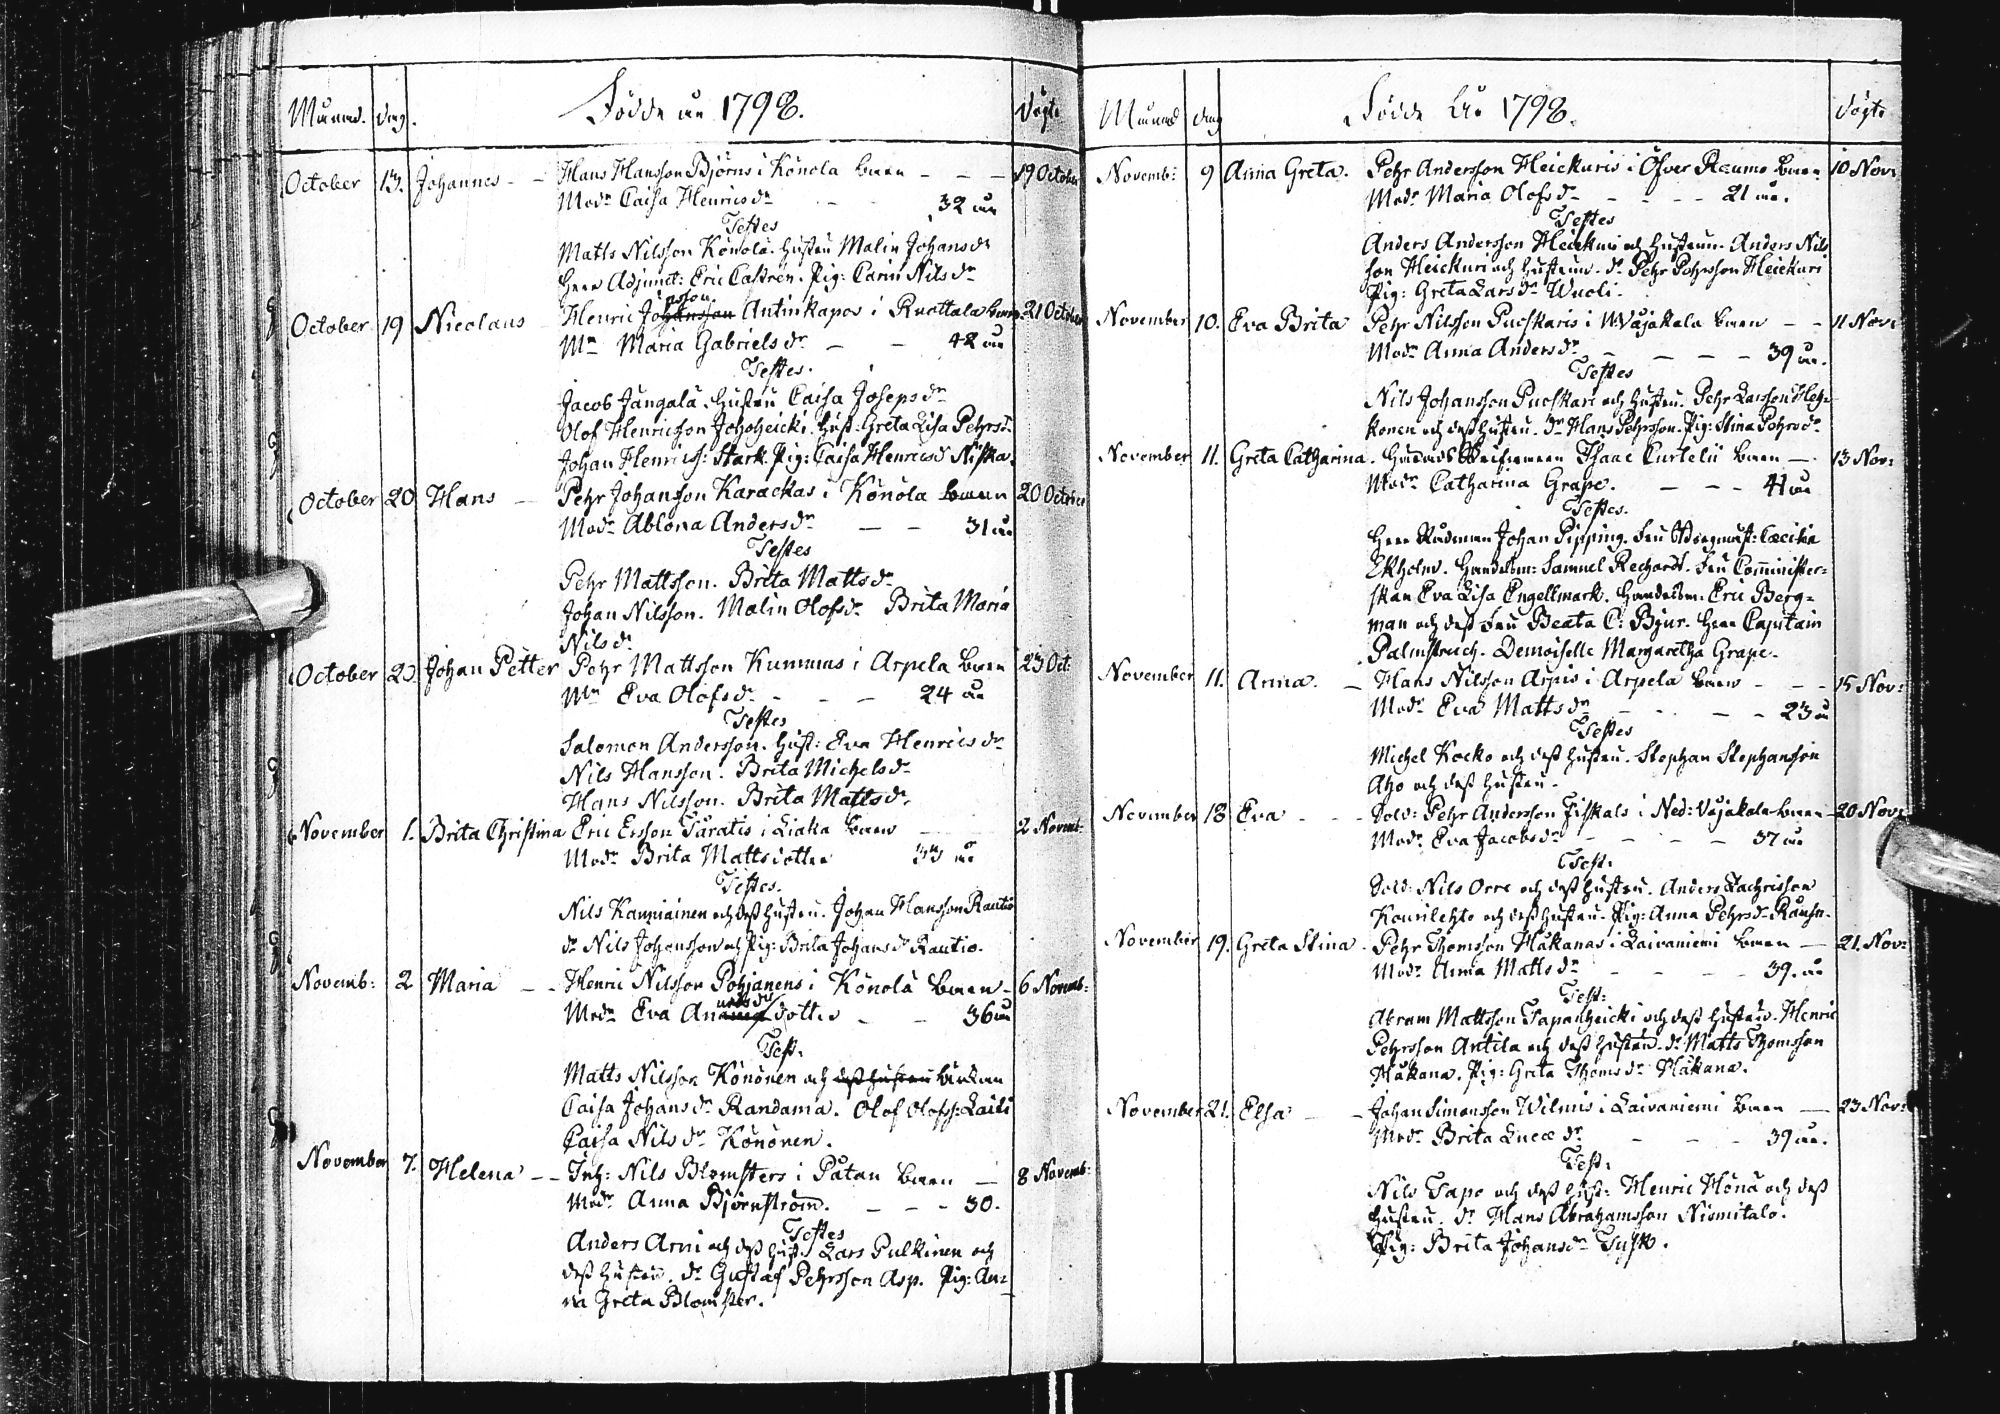 Månad. dag. Födde år 1798. Döpte
October 13. Johannes - - Hans Hansson Björns i Könölä barn - - - 19 October
Modr Caisa Henricsdr - - 32 år
Testes
Matts Nilsson Könölä. hustru Malin Johansdr
Herr Adjunct: Eric Castrén. Pig: Carin Nilsdr
October 19 Nicolaus - Henric Antinkapos i Ruottala barn - 21 October
Mr Maria Gabrielsdr - - 42 år
Testes.
Jacob Jungalä. hustru Caisa Josepsdr
Olof Henricsson Johoheicki. Hust: Greta Lisa Pehrsdr
Johan Henricss: Stark. Pig: Caisa Henricsdr Niska.
October 20 Hans - Pehr Johansson Karackas i Könölä barn 20 October
Modr Ablona Andersdr - - 31 år
Testes
Pehr Mattsson. Brita Mattsdr
Johan Nilsson. Malin Olofsdr Brita Maria
Nilsdr
October 23 Johan Petter Pehr Mattsson Kummus i Arpela barn 23 Oct:
Mr Eva Olofsdr - - - 24 år
Testes
Salomon Andersson. Hust: Eva Henricsdr
Nils Hansson. Brita Michelsdr
Hans Nilsson. Brita Mattsdr.
November 1. Brita Christina Eric Ersson Täratis i Liaka barn - 2 Novemb:
Modr Brita Mattsdotter 33 år
Testes.
Nils Kanniainen och dess hustru. Johan Hansson Rautio
dr Nils Johansson och Pig: Brita Johansdr Rautio.
Novemb: 2 Maria - - Henric Nilsson Pohjanens i Könölä barn - 6 Novemb:
Modr Eva dotter - - 36 år
Test:
Matts Nilsson Könönen och dess hustru
Caisa Johansdr Randama. Olof Olofss: Laiti
Caisa Nilsdr Könönen.
November 7. Helena - - Inh: Nils Blomsters i Påtan barn - 8 Novemb:
Modr Anna Björnström. - - - 30.
Testes
Anders Arni och dess hust. Lars Pulkinen och
dess hustru. dr Gustaf Pehrsson Asp. Pig: An-
na Greta Blomster.
Månad dag Födde År 1798. Döpte
Novemb: 9 Anna Greta. Pehr Andersson Heickuris i Öfver Raumo barn 10 Nov:
Modr Maria Olofsdr - - - - 21 år.
Testes
Anders Andersson Heickuri och hustrun. Anders Nils
son Heickuri och hustrun. dr Pehr Pehrsson Heickuri
Pig: Greta Larsdr Wuoli.
November 10. Eva Brita Pehr Nilsson Puckaris i N.Wäjakala barn - - 11 Nov:
Modr Anna Andersdr - - - - 39 år.
Testes
Nils Johansson Puckari och hustru. Pehr Larsson Hey-
konen och dess hustru. dr Hans Pehrsson. Pig: Stina Pehrsdr
November 11. Greta Catharina. Isaac Curtelii barn - 13 Nov:
Modr Catharina Grape. - - - 41 år
Testes.
Herr Rådman Johan Pipping. Fru Cæcilia
Ekholm. Handelsm: Samuel Rechardt. Fru Comminister-
skan Eva Lisa Engellmark. Handelsm: Eric Berg-
man och dess Fru Beata C: Bjur. Herr Capitain
Palmstruch. Demoiselle Margaretha Grape.
November 11. Anna. - Hans Nilsson Arpis i Arpela barn - - - 15 Nov:
Modr Eva Mattsdr - - - - 23 år
Testes
Michel Kocko och dess hustru. Stephan Stephansson
Aho och dess hustru.
November 18 Eva - - - Sold: Pehr Andersson Fiskals i Ned: Wäjakala barn - 20 Nov:
Modr Eva Jacobsdr - - - - 37 år
Test:
Sold: Nils Orre och dess hustru. Anders Zachrisson
Kourilehto och dess hustru. Pig: Anna Pehrsdr
November 19. Greta Stina. Pehr Thomsson Häkanas i Laivaniemi barn - 21. Nov:
Modr Anna Mattsdr - - - 39. år
Test:
Abram Mattsson Tapanheicki och dess hustru. Henric
Pehrsson Antila och dess hustru. dr Matts Thomsson
Häkana. Pig: Greta Thomsdr Häkana.
November 21. Elsa - - - Johan Simonsson Wilmis i Laivaniemi barn - 23 Nov:
Modr Brita Lucæ dr - - - 39 år.
Test:
Nils Tapo och dess hust: Henric Hönä och dess
hustru. dr Hans Abrahamsson Niemitalo.
Pig: Brita Johansdr Tusk.